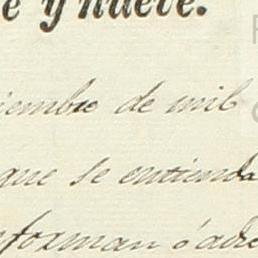 e y nueve.
iembre de mil
que se entienda
nforman ó adve